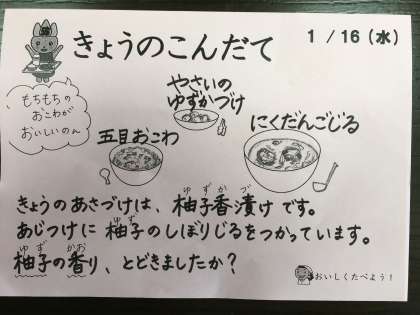 きょうのこんだて
1/16(水)
もちもちの
おこわが
おいしいのん
やさいの
ゆずかづけ
五目おこわ
にくだんごじる
きょうのあさづけは、柚子香漬けです。
ゆずかづ
あじつけに柚子のしぼりじるをつかっています。
ゆず
柚子の香り、とどきましたか?
ゆず かお
おいしくたべよう!